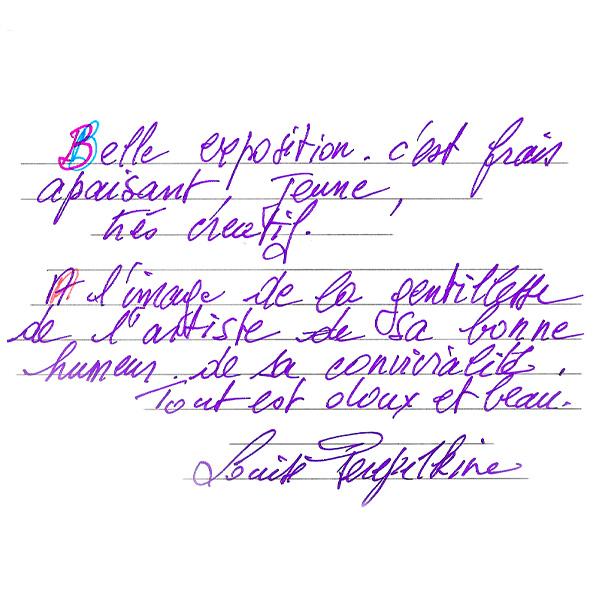 Belle exposition. c'est frais
apaisant, Jeune,
très créatif.
A l'image de la gentillesse
de l'artiste de sa bonne
humeur. de sa convivialité.
Tout est doux et beau.
Louise